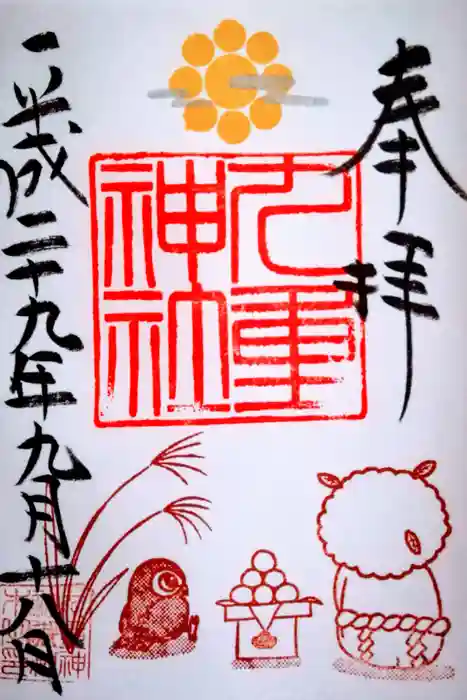 奉拝
九重
神社
平成二十九年九月十八日